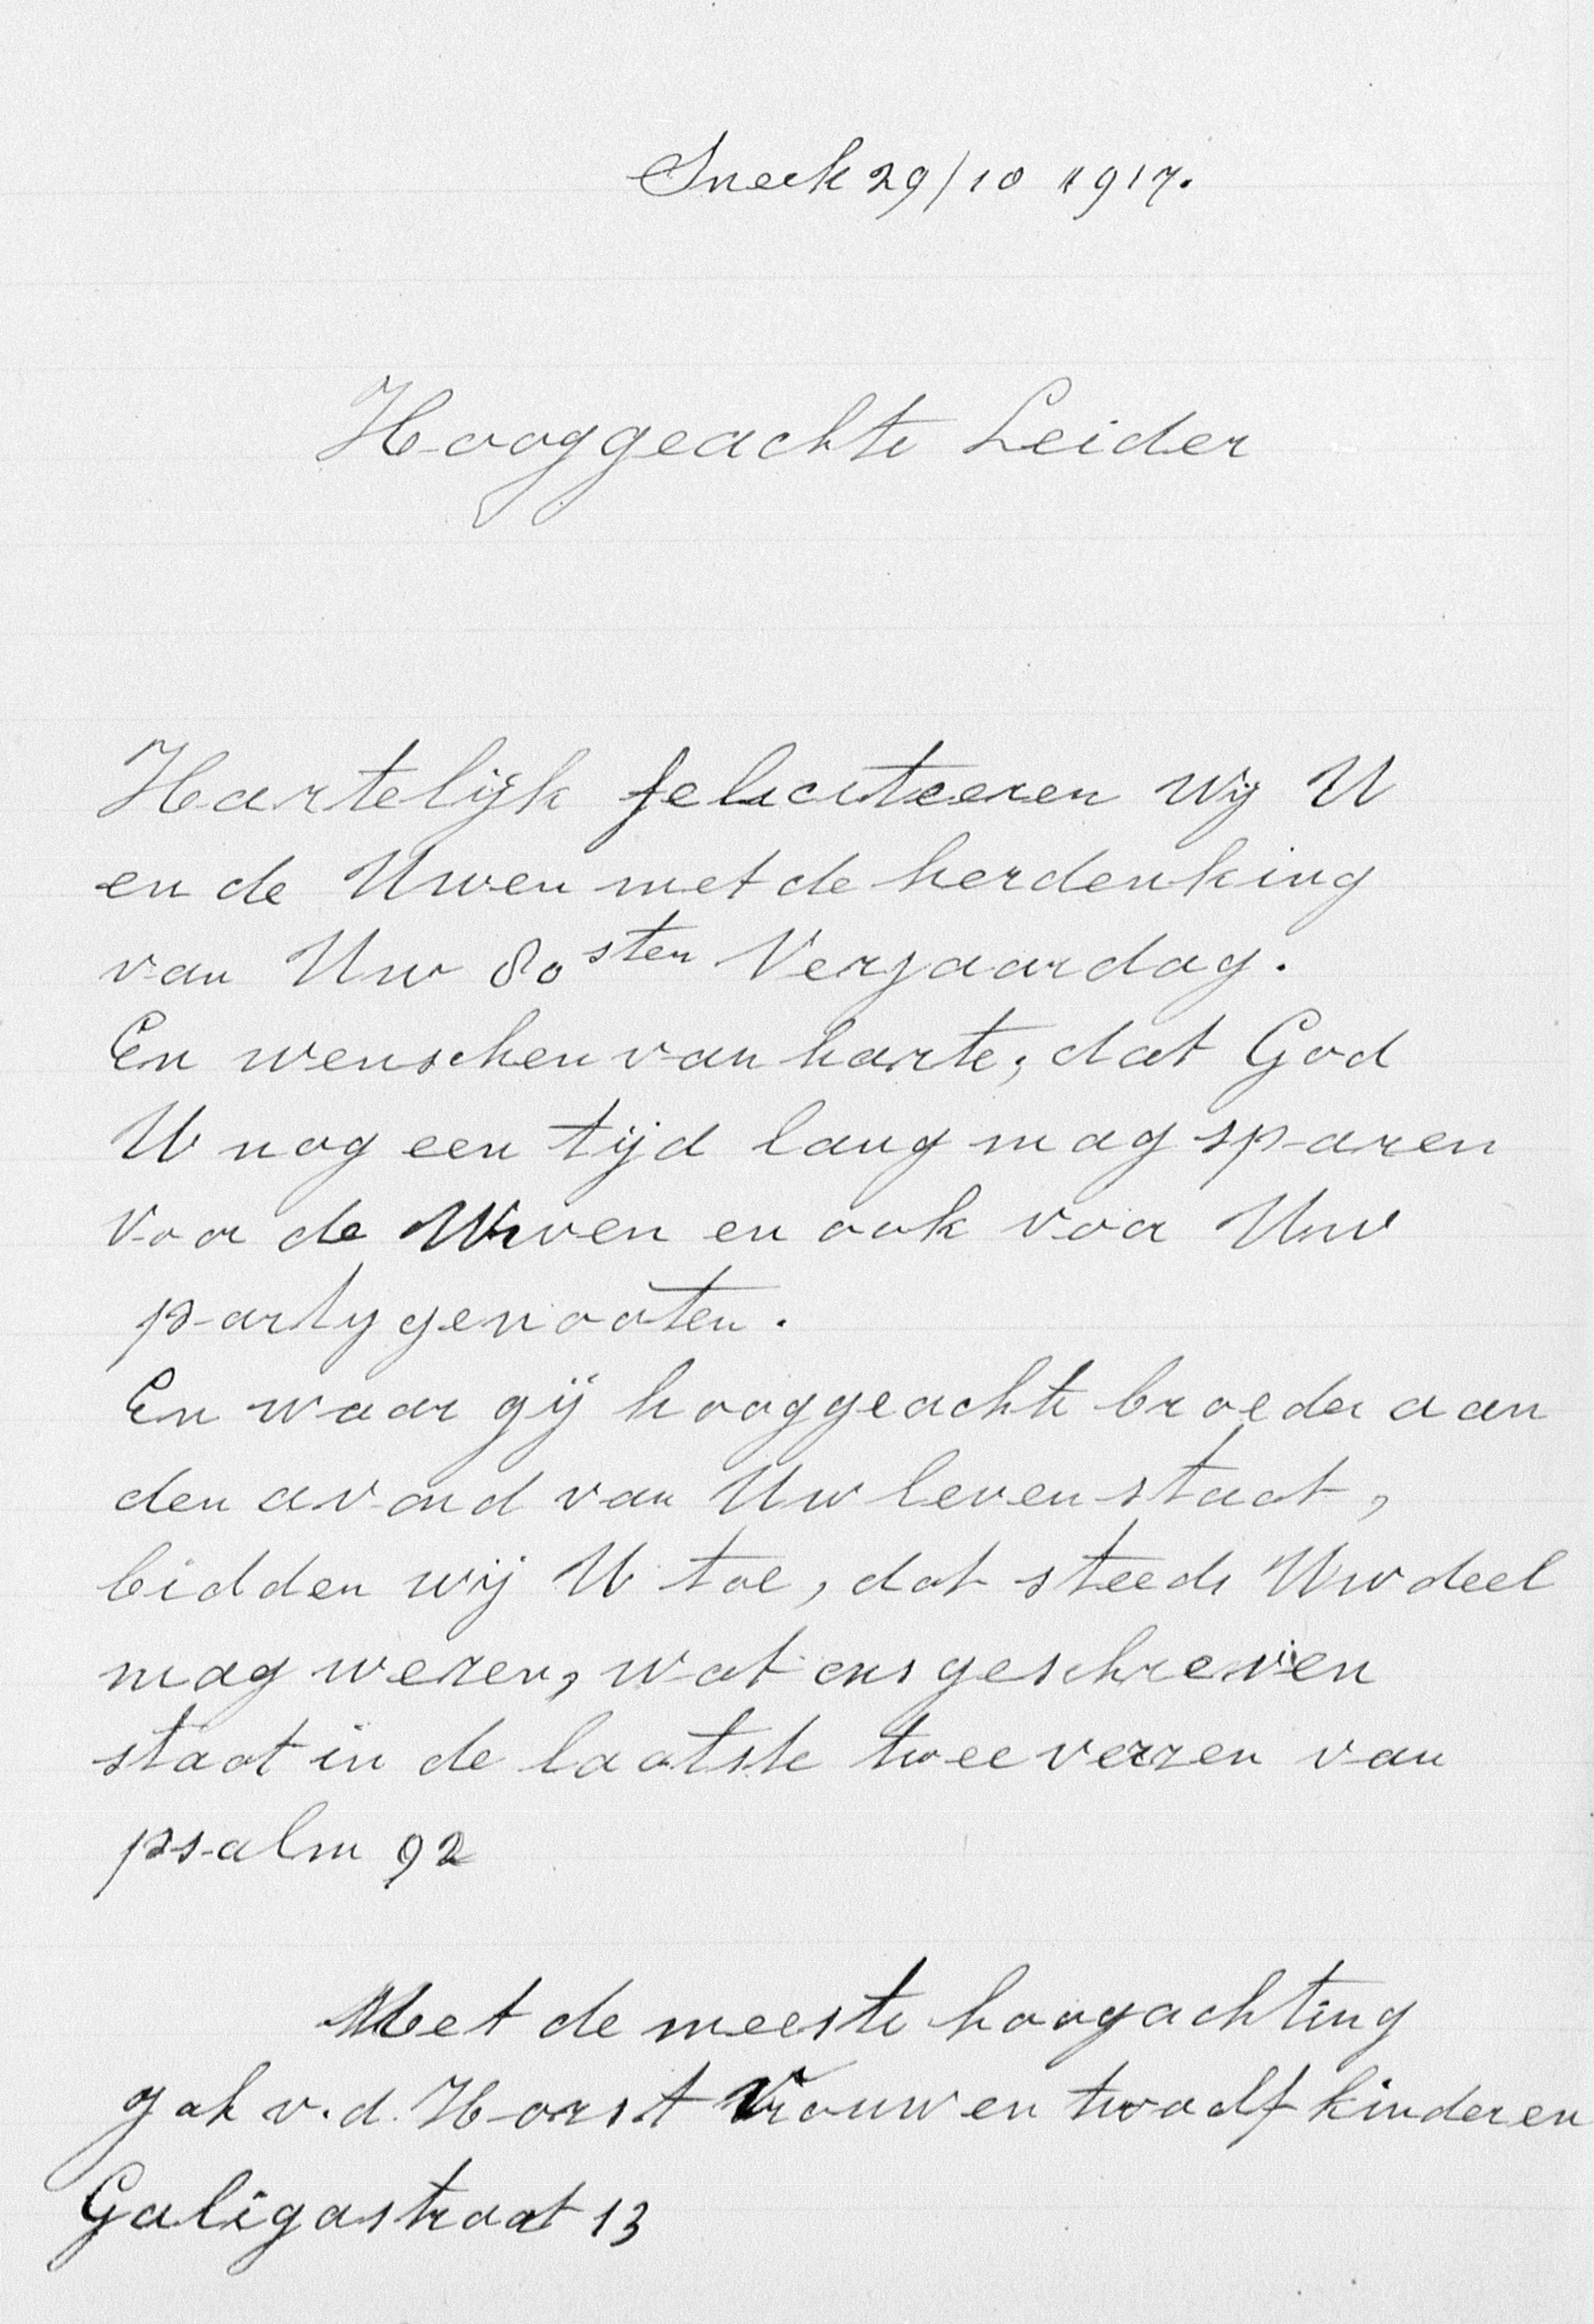 Sneek 29/10 1917.
Hooggeachte Leider
Hartelijk feliciteeren wij U
en de Uwen met de herdenking
van Uw 80sten Verjaardag.
En wenschen van harte, dat God
U nog een tijd lang mag sparen
voor de Uwen en ook voor Uw
partygenooten.
En waar gij hooggeachte broeder aan
den avond van Uw leven staat,
bidden wij U toe, dat steeds Uw deel
mag wezen, wat ons geschreven
staat in de laatste twee verzen van
psalm 92
Met de meeste hoogachting
Jak v.d. Horst Vrouw en twaalf kinderen
Galigastraat 13